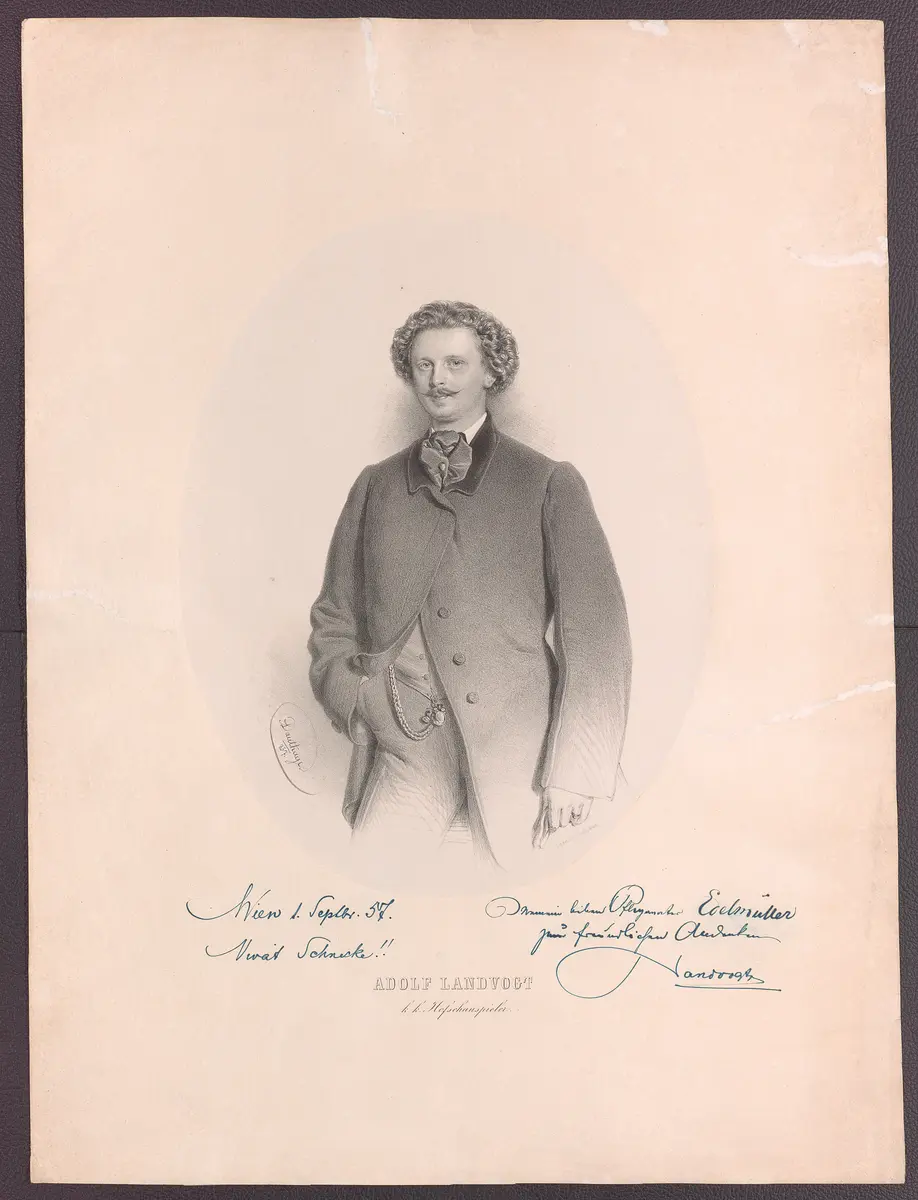 Dauthage
57
Wien 1. Septbr. 57.
Vivat Schnecke!!
Meinem lieben Pflegevater Edelmüller
zum freundlichen Andenken
Landvogt
ADOLF LANDVOGT
k. k. Hofschauspieler.